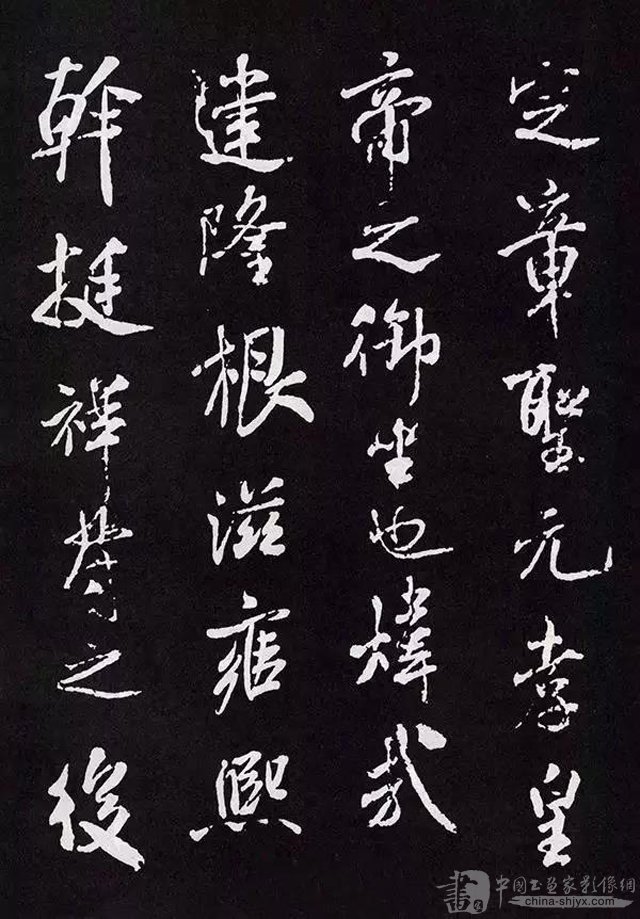 定章聖元孝皇
帝之御坐也煒哉
建隆根滋雍熙
幹挺祥符之後
書
中國书画家影像網
china-shjyx.com